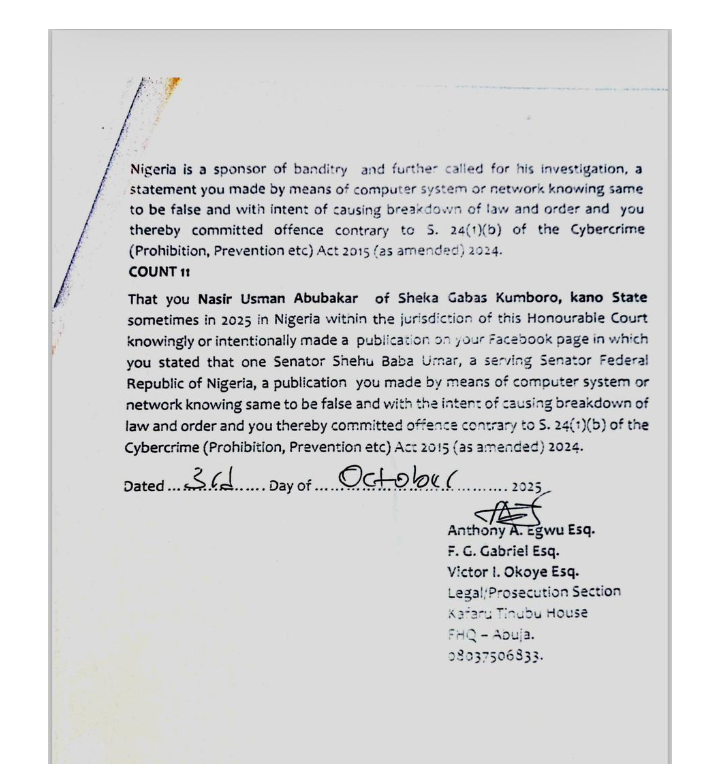 Nigeria is a sponsor of banditry and further called for his investigation, a
statement you made by means of computer system or network knowing same
to be false and with intent of causing breakdown of law and order and you
thereby committed offence contrary to S. 24(1)(b) of the Cybercrime
(Prohibition, Prevention etc) Act 2015 (as amended) 2024.
COUNT 11
That you Nasir Usman Abubakar of Sheka Gabas Kumboro, kano State
sometimes in 2025 in Nigeria within the jurisdiction of this Honourable Court
knowingly or intentionally made a publication on your Facebook page in which
you stated that one Senator Shehu Baba Umar, a serving Senator Federal
Republic of Nigeria, a publication you made by means of computer system or
network knowing same to be false and with the intent of causing breakdown of
law and order and you thereby committed offence contrary to S. 24(1)(b) of the
Cybercrime (Prohibition, Prevention etc) Act 2015 (as amended) 2024.
Dated ... 3rd ...... Day of ... October ............ 2025
Anthony A. Egwu Esq.
F. G. Gabriel Esq.
Victor I. Okoye Esq.
Legal/Prosecution Section
Kafaru Tinubu House
FHQ – Abuja.
08037506833.